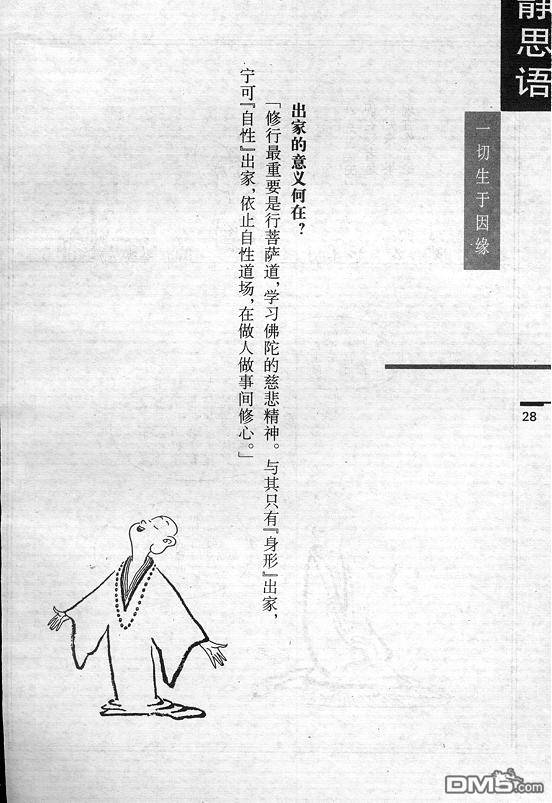 静思语
一切生于因缘
28
出家的意义何在？
「修行最重要是行菩萨道，学习佛陀的慈悲精神。与其只有『身形』出家，
宁可『自性』出家，依止自性道场，在做人做事间修心。」
DM5.com